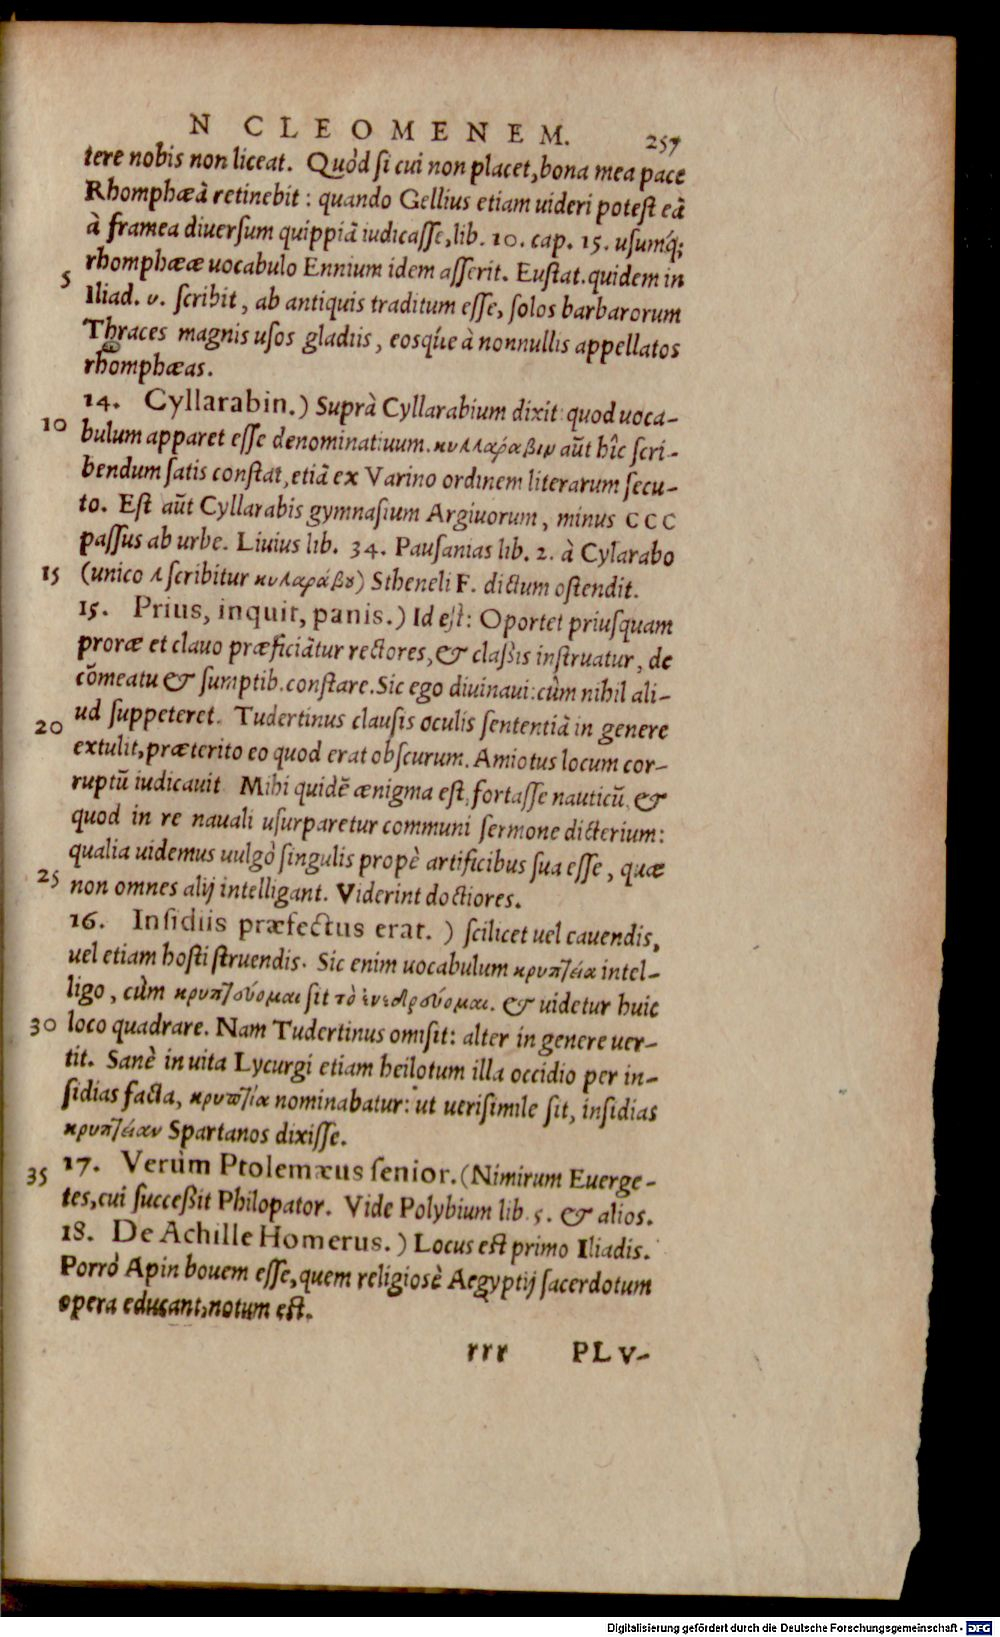 N CLEOMENEM. 257
tere nobis non liceat. Quòd si cui non placet, bona mea pace
Rhomphæā retinebit: quando Gellius etiam uideri potest eā
à framea diuersum quippiā iudicasse, lib. 10. cap. 15. usumq́;
rhomphææ uocabulo Ennium idem asserit. Eustat. quidem in
5 Iliad. υ. scribit, ab antiquis traditum esse, solos barbarorum
Thraces magnis usos gladiis, eosq́ue à nonnullis appellatos
rhomphæas.
14. Cyllarabin.) Suprà Cyllarabium dixit: quod uoca-
10 bulum apparet esse denominatiuum. κυλλαράβιν aūt hîc scri-
bendum satis constat, etiā ex Varino ordinem literarum secu-
to. Est aūt Cyllarabis gymnasium Argiuorum, minus CCC
passus ab urbe. Liuius lib. 34. Pausanias lib. 2. à Cylarabo
15 (unico λ scribitur κυλαράβȣ) Stheneli F. dictum ostendit.
15. Prius, inquit, panis.) Id est: Oportet priusquam
proræ et clauo præficiātur rectores, & claßis instruatur, de
cōmeatu & sumptib. constare. Sic ego diuinaui: cùm nihil ali-
ud suppeteret. Tudertinus clausis oculis sententiā in genere
20 extulit, præterito eo quod erat obscurum. Amiotus locum cor-
ruptū iudicauit. Mihi quidē ænigma est, fortasse nauticū, &
quod in re nauali usurparetur communi sermone dicterium:
qualia uidemus uulgò singulis propè artificibus sua esse, quæ
25 non omnes alij intelligant. Viderint doctiores.
16. Insidiis præfectus erat.) scilicet uel cauendis,
uel etiam hosti struendis. Sic enim uocabulum κρυπτεία intel-
ligo, cùm κρυπτεύομαι sit τὸ ἐνεδρεύομαι. & uidetur huic
30 loco quadrare. Nam Tudertinus omisit: alter in genere uer-
tit. Sanè in uita Lycurgi etiam heilotum illa occidio per in-
sidias facta, κρυπτία nominabatur: ut uerisimile sit, insidias
κρυπτείαν Spartanos dixisse.
35 17. Verùm Ptolemæus senior.(Nimirum Euerge-
tes, cui succeßit Philopator. Vide Polybium lib. 5. & alios.
18. De Achille Homerus.) Locus est primo Iliadis.
Porrò Apin bouem esse, quem religiosè Aegyptij sacerdotum
opera educant, notum est.
rrr PLV-
Digitalisierung gefördert durch die Deutsche Forschungsgemeinschaft - DFG